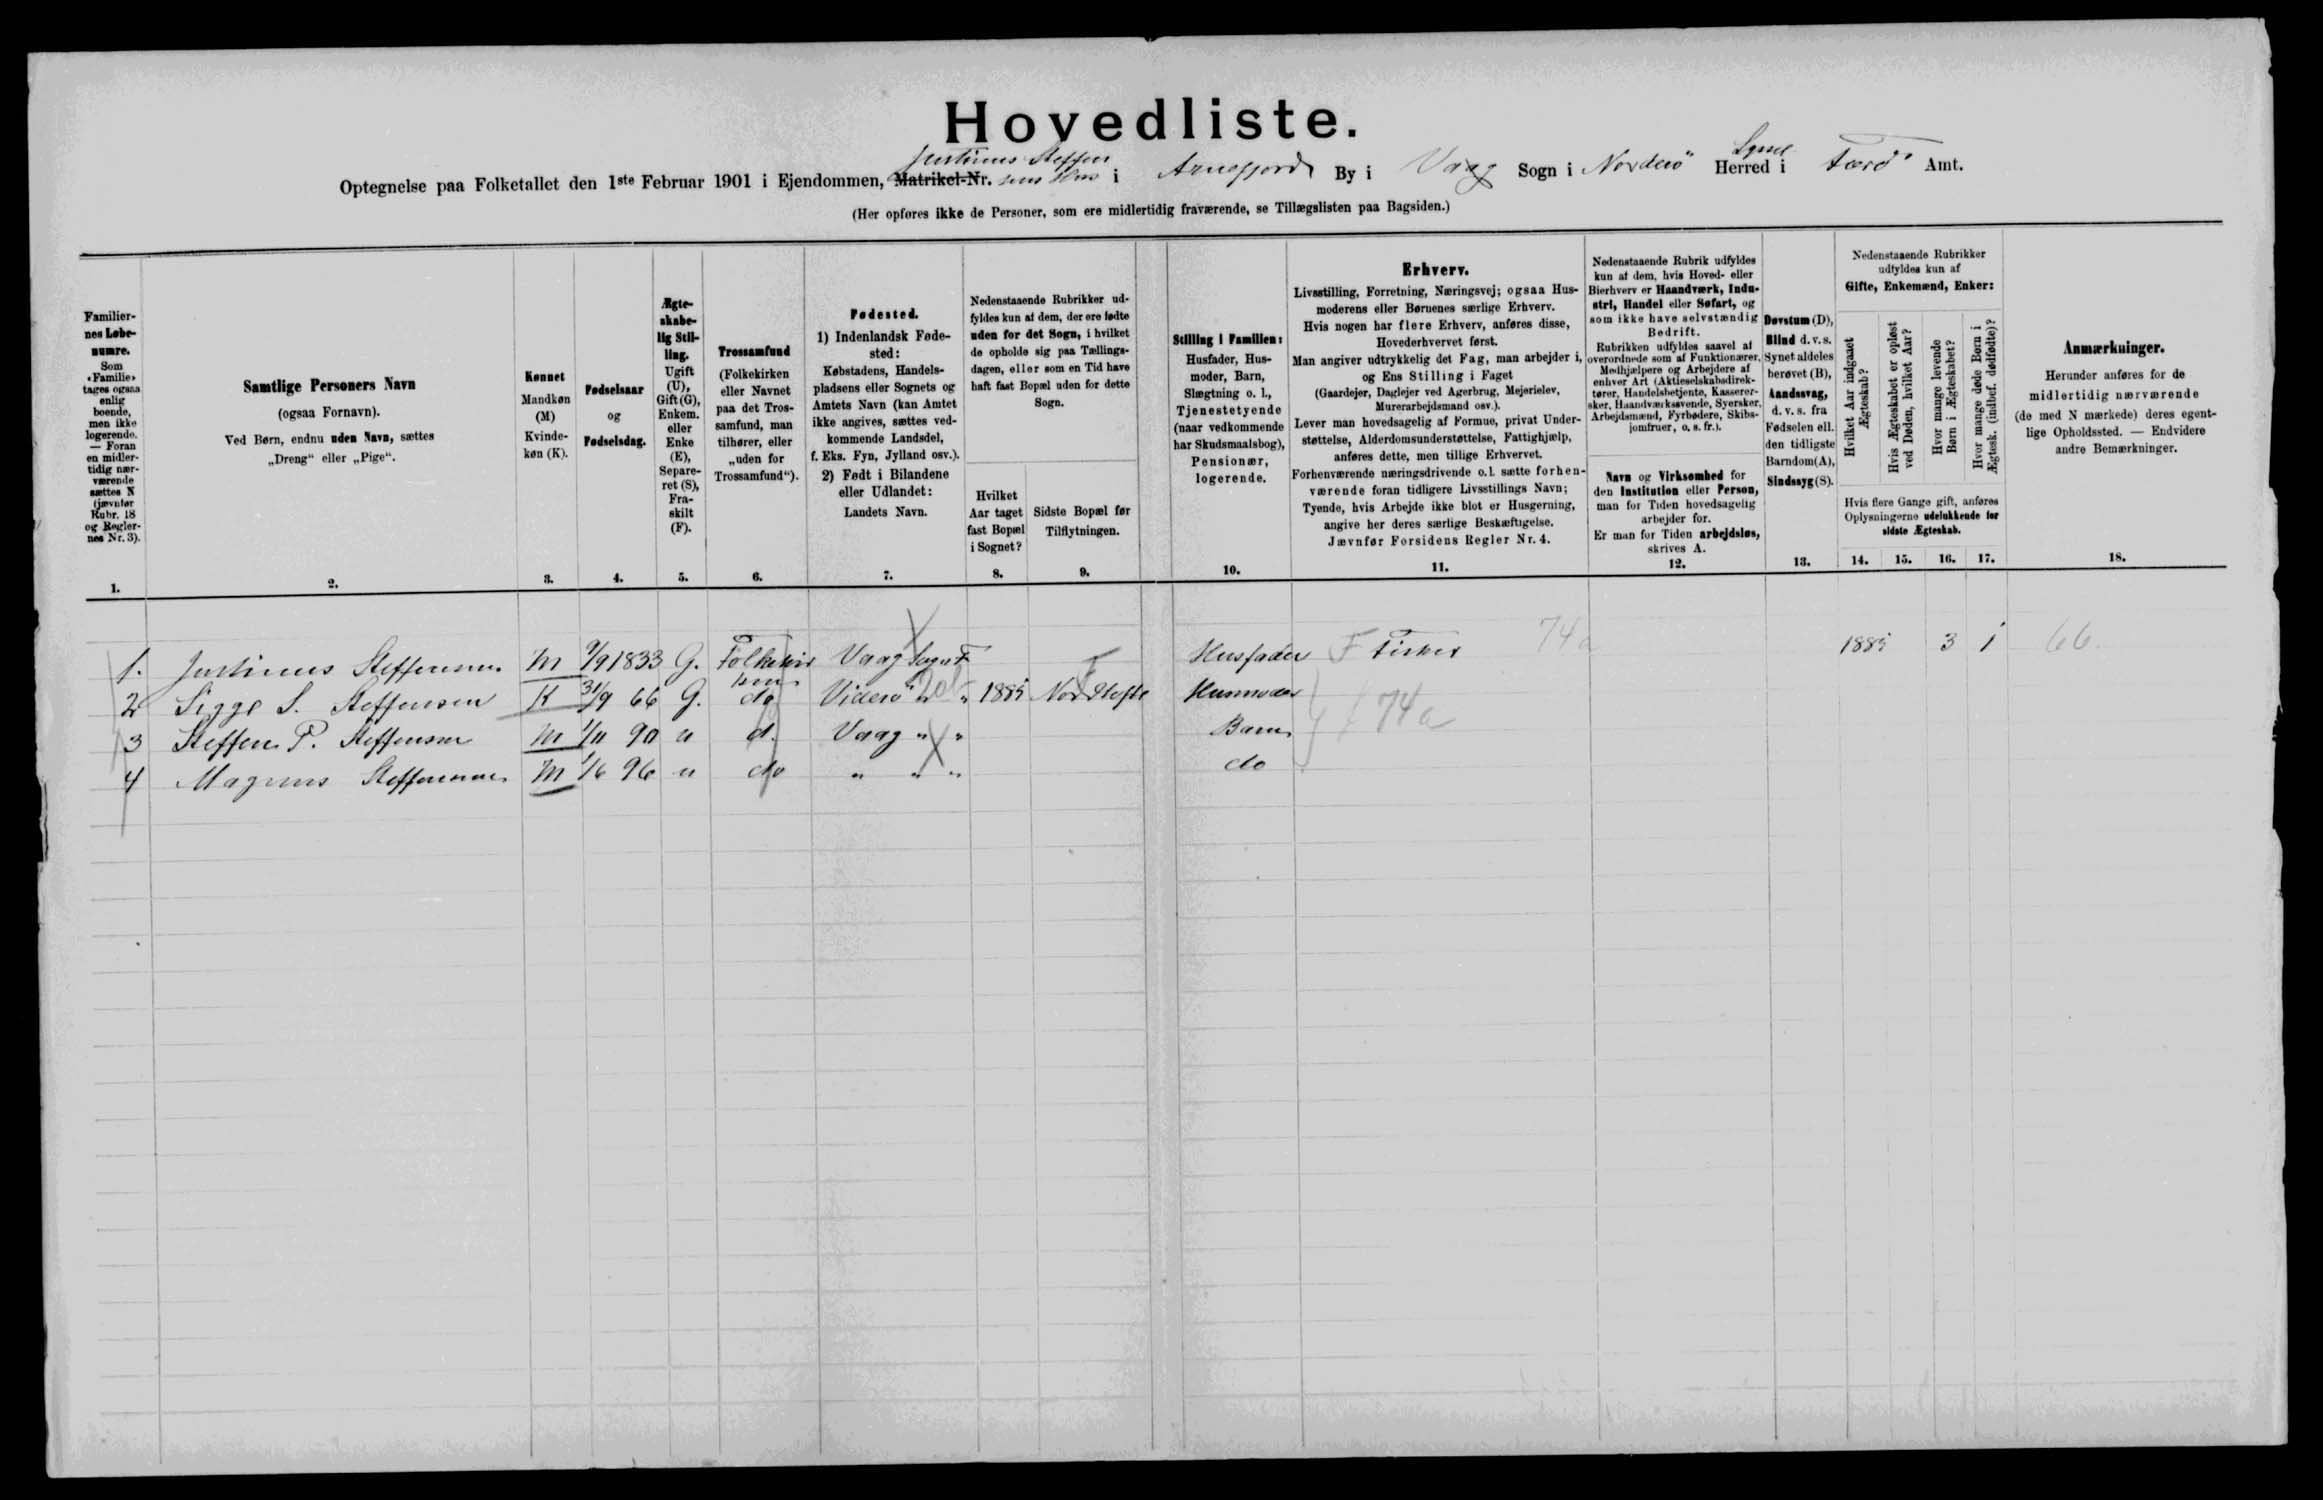 Hovedliste.
Justinus Steffen
Optegnelse paa Folketallet den 1ste Februar 1901 i Ejendommen, Matrikel-Nr. sens Hus i Arnefjord By i Vaag Sogn i Norderö Herred i Færö Amt.
Syssel
(Her opføres ikke de Personer, som ere midlertidig fraværende, se Tillægslisten paa Bagsiden.)
Familier-
nes Løbe-
numre.
Som
«Familie»
tages ogsaa
enlig
boende,
men ikke
logerende.
— Foran
en midler-
tidig nær-
værende
sættes N
(jævnfør
Rubr. 18
og Regler-
nes Nr. 3).
1.
Samtlige Personers Navn
(ogsaa Fornavn).
Ved Børn, endnu uden Navn, sættes
„Dreng“ eller „Pige“.
2.
Kønnet
Mandkøn
(M)
Kvinde-
køn (K).
3.
Fødselsaar
og
Fødselsdag.
4.
Ægte-
skabe-
lig Stil-
ling.
Ugift
(U),
Gift (G),
Enkem.
eller
Enke
(E),
Separe-
ret (S),
Fra-
skilt
(F).
5.
Trossamfund
(Folkekirken
eller Navnet
paa det Tros-
samfund, man
tilhører, eller
„uden for
Trossamfund“).
6.
Fødested.
1) Indenlandsk Føde-
sted:
Købstadens, Handels-
pladsens eller Sognets og
Amtets Navn (kan Amtet
ikke angives, sættes ved-
kommende Landsdel,
f. Eks. Fyn, Jylland osv.).
2) Født i Bilandene
eller Udlandet:
Landets Navn.
7.
Nedenstaaende Rubrikker ud-
fyldes kun af dem, der ere fødte
uden for det Sogn, i hvilket
de opholde sig paa Tællings-
dagen, eller som en Tid have
haft fast Bopæl uden for dette
Sogn.
Hvilket
Aar taget
fast Bopæl
i Sognet?
8.
Sidste Bopæl før
Tilflytningen.
9.
Stilling i Familien:
Husfader, Hus-
moder, Barn,
Slægtning o. l.,
Tjenestetyende
(naar vedkommende
har Skudsmaalsbog),
Pensionær,
logerende.
10.
Erhverv.
Livsstilling, Forretning, Næringsvej; ogsaa Hus-
moderens eller Børnenes særlige Erhverv.
Hvis nogen har flere Erhverv, anføres disse,
Hovederhvervet først.
Man angiver udtrykkelig det Fag, man arbejder i,
og Ens Stilling i Faget
(Gaardejer, Daglejer ved Agerbrug, Mejerielev,
Murerarbejdsmand osv.).
Lever man hovedsagelig af Formue, privat Under-
støttelse, Alderdomsunderstøttelse, Fattighjælp,
anføres dette, men tillige Erhvervet.
Forhenværende næringsdrivende o. l. sætte forhen-
værende foran tidligere Livsstillings Navn;
Tyende, hvis Arbejde ikke blot er Husgerning,
angive her deres særlige Beskæftigelse.
Jævnfør Forsidens Regler Nr. 4.
11.
Nedenstaaende Rubrik udfyldes
kun af dem, hvis Hoved- eller
Bierhverv er Haandværk, Indu-
stri, Handel eller Søfart, og
som ikke have selvstændig
Bedrift.
Rubrikken udfyldes saavel af
overordnede som af Funktionærer,
Medhjælpere og Arbejdere af
enhver Art (Aktieselskabsdirek-
tører, Handelsbetjente, Kasserer-
sker, Haandværkssvende, Syersker,
Arbejdsmænd, Fyrbødere, Skibs-
jomfruer, o. s. fr.).
Navn og Virksomhed for
den Institution eller Person,
man for Tiden hovedsagelig
arbejder for.
Er man for Tiden arbejdsløs,
skrives A.
12.
Døvstum (D),
Blind d. v. s.
Synet aldeles
berøvet (B),
Aandssvag,
d. v. s. fra
Fødselen ell.
den tidligste
Barndom (A),
Sindssyg (S).
13.
Nedenstaaende Rubrikker
udfyldes kun af
Gifte, Enkemænd, Enker:
Hvilket Aar indgaaet
Ægteskab?
Hvis Ægteskabet er opløst
ved Døden, hvilket Aar?
Hvor mange levende
Børn i Ægteskabet?
Hvor mange døde Børn i
Ægtesk. (indbef. dødfødte)?
Hvis flere Gange gift, anføres
Oplysningerne udelukkende for
sidste Ægteskab.
14. 15. 16. 17.
Anmærkninger.
Herunder anføres for de
midlertidig nærværende
(de med N mærkede) deres egent-
lige Opholdssted. — Endvidere
andre Bemærkninger.
18.
1. Justinus Steffensen M 9/9 1833 G. Folkekir Vaag Sogn F Husfader F Fisker 74a 1885 3 1 66.
ken
2 Sigge S. Steffensen K 31/9 66 G. do Viderö " " 1885 Nordtofte Husmoder
3 Steffen P. Steffensen M 1/11 90 u d. Vaag " " Barn f 74a
4 Magnus Steffensen M 1/6 96 u do " " " do